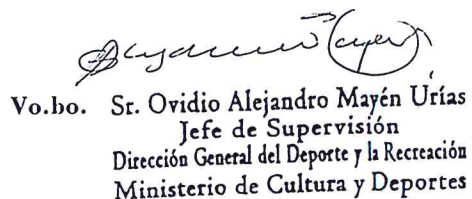 Vo.bo. Sr. Ovidio Alejandro Mayén Urías
Jefe de Supervisión
Dirección General del Deporte y la Recreación
Ministerio de Cultura y Deportes